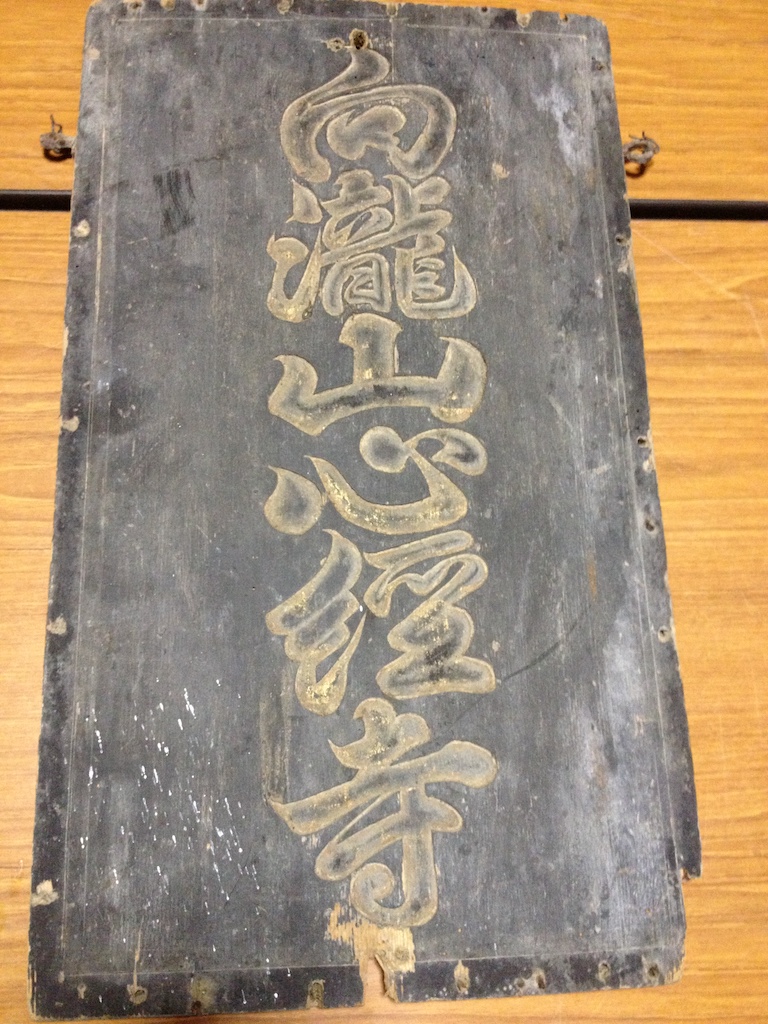 向瀧山心經寺